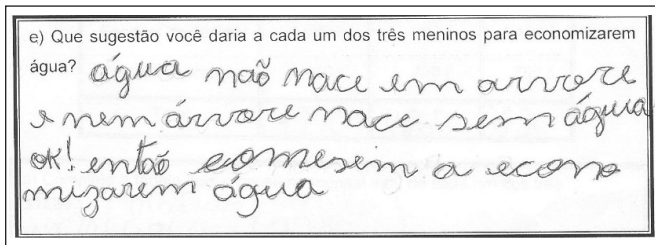 e) Que sugestão você daria a cada um dos três meninos para economizarem
água? água não nace em arvore
e nem árvore nace sem água
ok! então comesem a econo
mizarem água